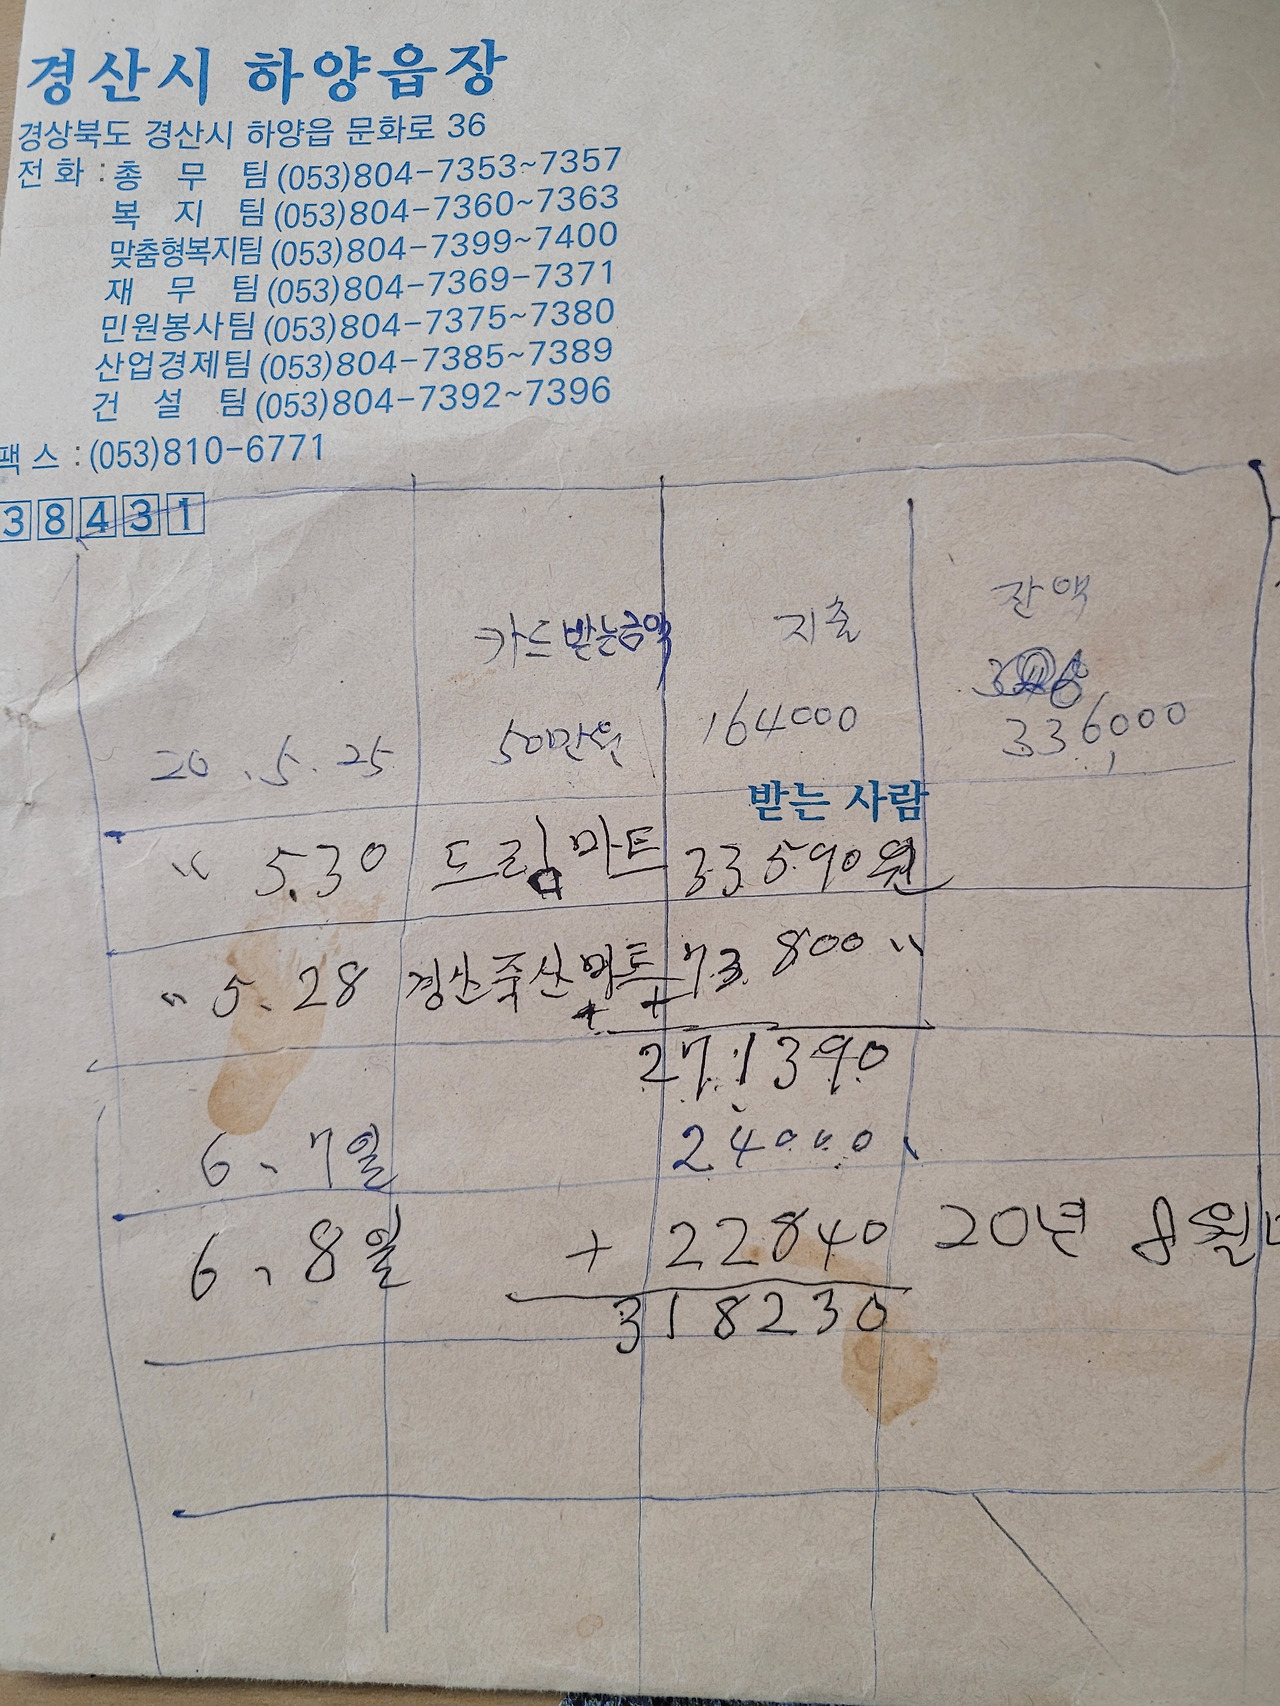 경산시 하양읍장
경상북도 경산시 하양읍 문화로 36
전 화 : 총 무 팀 (053)804-7353~7357
복 지 팀 (053)804-7360~7363
맞춤형복지팀 (053)804-7399~7400
재 무 팀 (053)804-7369-7371
민원봉사팀 (053)804-7375~7380
산업경제팀 (053)804-7385~7389
건 설 팀 (053)804-7392~7396
팩 스 : (053)810-6771
38431
카드 받는금액 지출 잔액
20.5.25 50만원 164000 336000
받는 사람
〃 5.30 드림마트 33590원
〃 5.28 경산축산마트 73800 〃
+
271390
6.7일 24000
6.8일 + 22840 20년 8월
318230